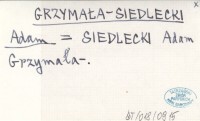 x
GRZYMAŁA-SIEDLECKI
Adam = SIEDLECKI Adam
Grzymała-.